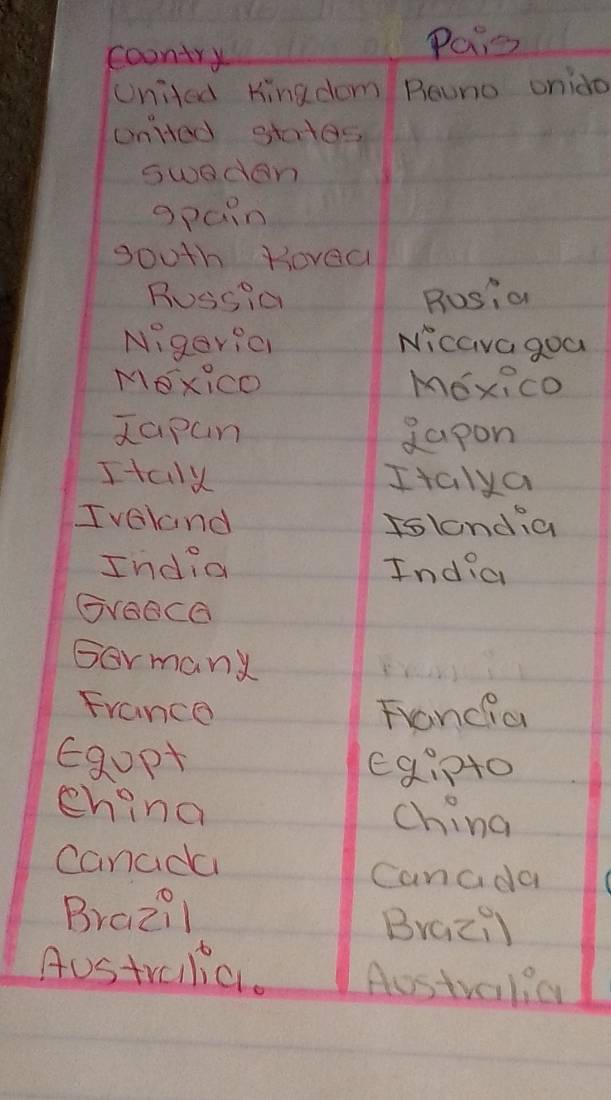 country Pais
United Kingdom Reuno unido
united states
sweden
spain
south Korea
Russia Rusia
Nigeria Nicaragua
México México
Iapan iapon
Italy Italya
Ireland Islandia
India India
Greece
Germany
France Francia
Egupt Egipto
China China
canada canada
Brazil Brazil
Australia. Australia